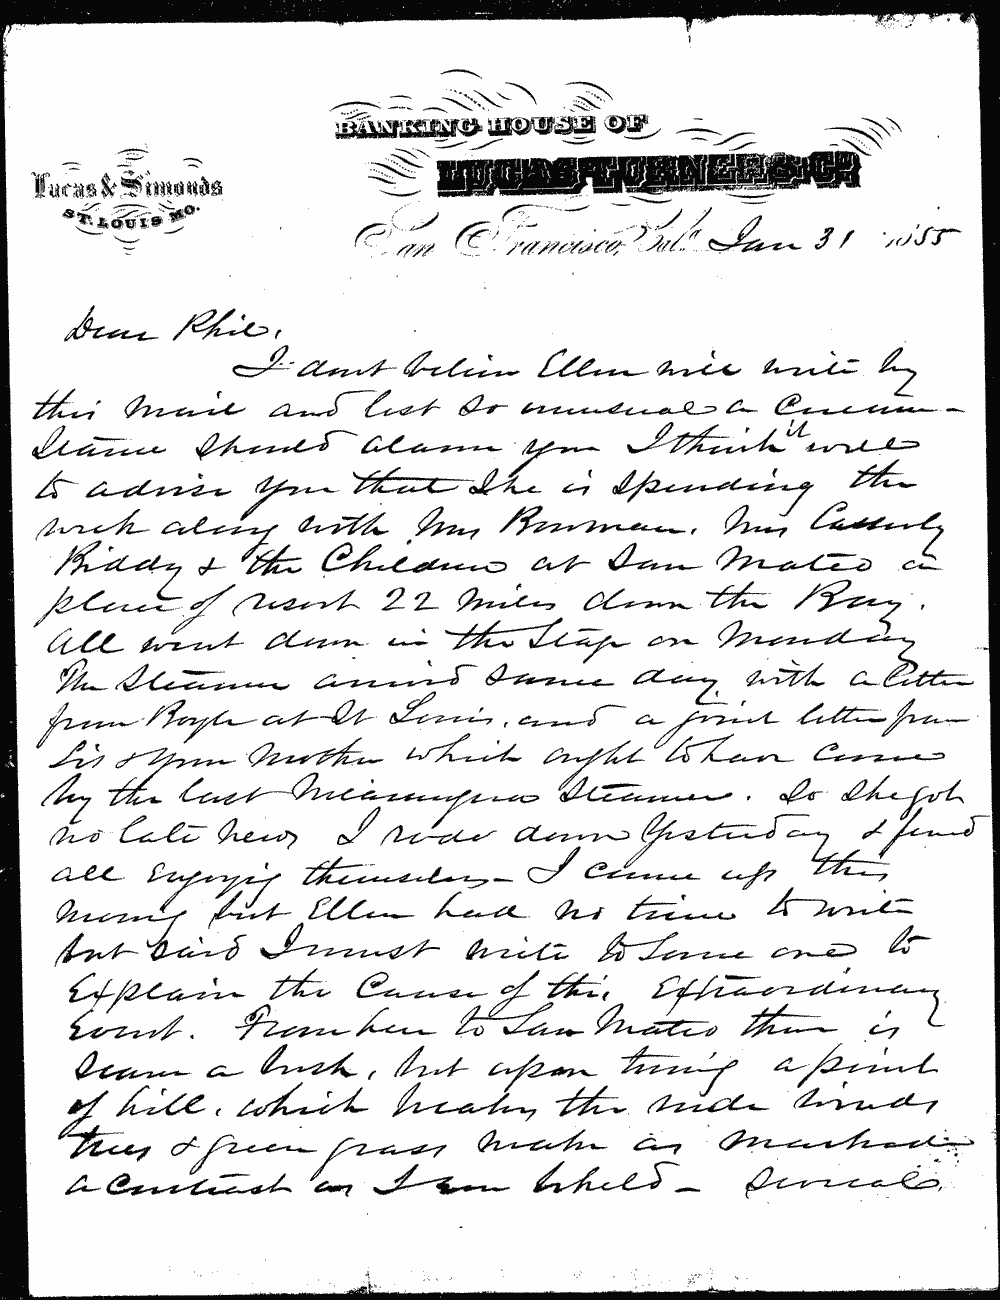 BANKING HOUSE OF
LUCAS TURNER & CO.
Lucas & Simonds
ST. LOUIS MO.
San Francisco, Cal. Jan 31 1855
Dear Phil,
I dont believe Ellen will write by
this mail and lest so unusual a Circum-
stance should alarm you I think it well
to advise you that She is spending the
week along with Mrs Bowman, Mrs Casserly
Biddy & the Children at San Mateo a
place of resort 22 miles down the Bay.
All went down in the Stage on Monday
The Steamer arrived same day with a letter
from Boyle at St Louis, and a joint letter from
Sis & your Mother which ought to have come
by the last Nicaragua Steamer. So She got
no late news I rode down Yesterday & found
all enjoying themselves - I came up this
morning but Ellen had no time to write
but said I must write to some one to
Explain the Cause of this Extraordinary
Event. From here to San Mateo there is
scarce a bush, but upon turning a point
of hill, which breaks the winds
trees & green grass make as marked
a contrast as I ever beheld - Several